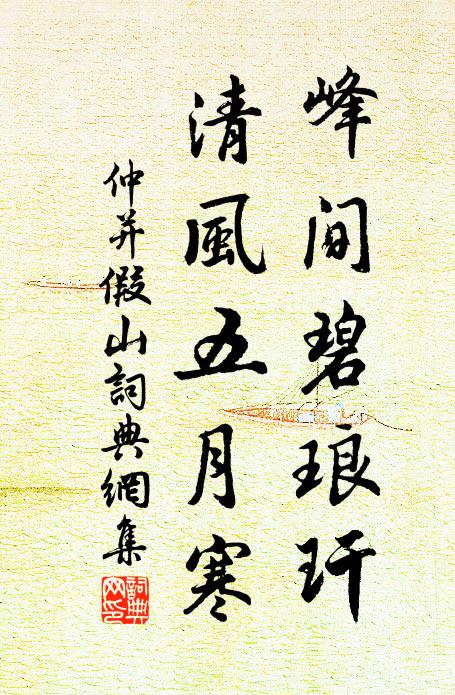 峰間碧琅玕
清風五月寒
仲并假山詞典網集
詞典网印